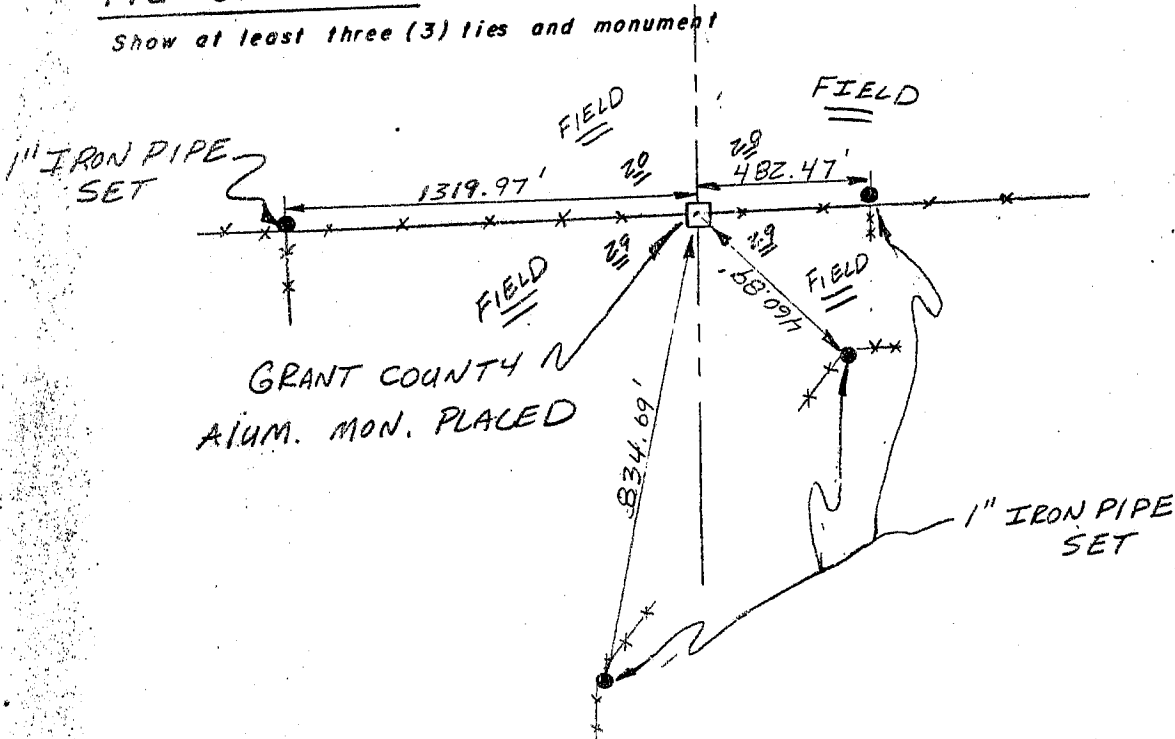 Show at least three (3) ties and monument
FIELD
FIELD
1" IRON PIPE
SET
20
1319.97'
482.47'
29
FIELD
FIELD
460.89'
GRANT COUNTY
AlUM. MON. PLACED
834.69'
1" IRON PIPE
SET